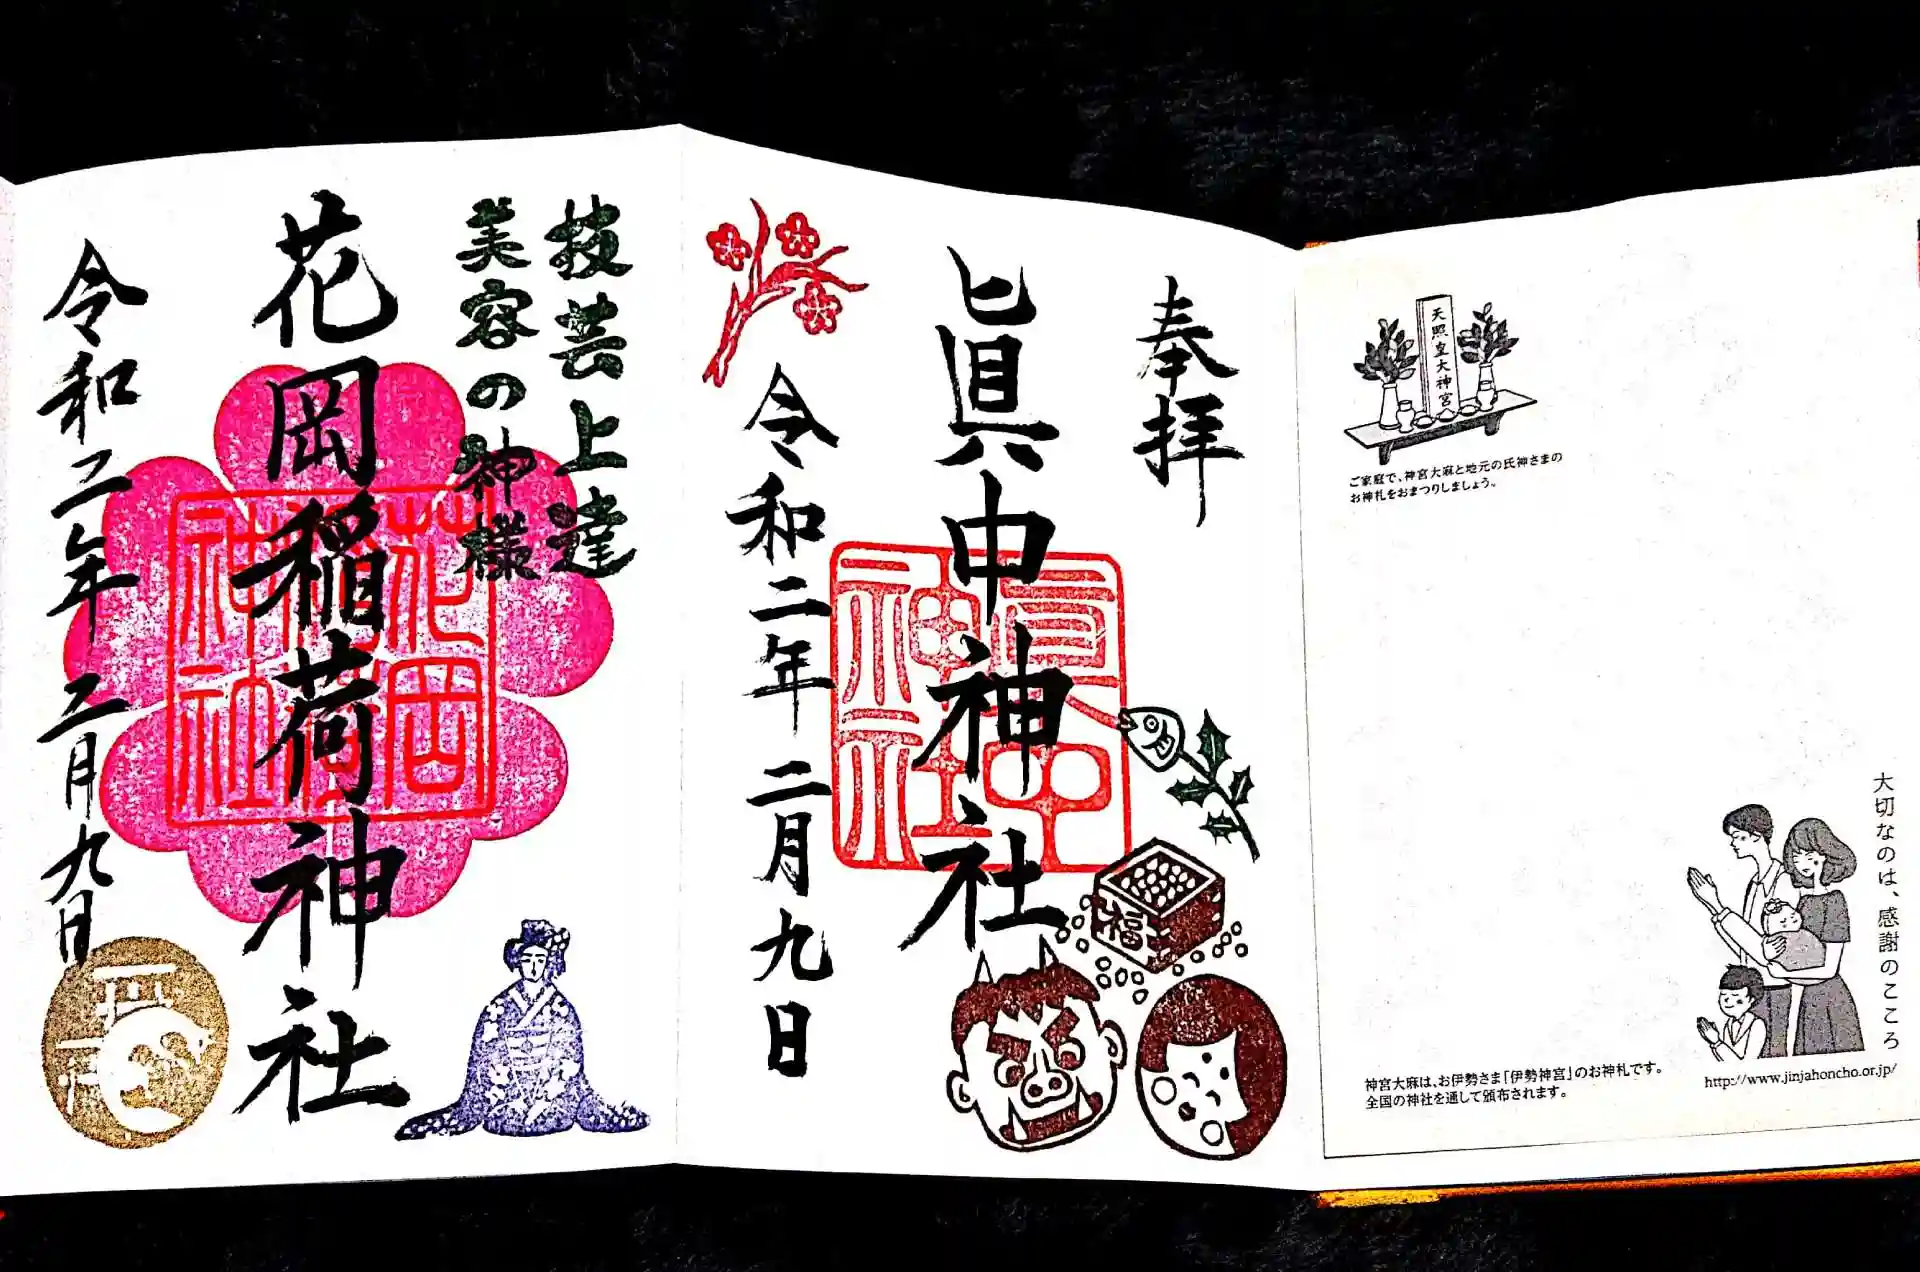 天照皇大神宮
ご家庭で、神宮大麻と地元の氏神さまの
お神札をおまつりしましょう。
大切なのは、感謝のこころ
神宮大麻は、お伊勢さま「伊勢神宮」のお神札です。
全国の神社を通して頒布されます。
http://www.jinjahoncho.or.jp/
奉拝
眞中神社
眞中
神社
令和二年 二月九日
福
技芸上達
美容の神様
花岡稲荷神社
花岡
稲荷
神社
令和二年 二月九日